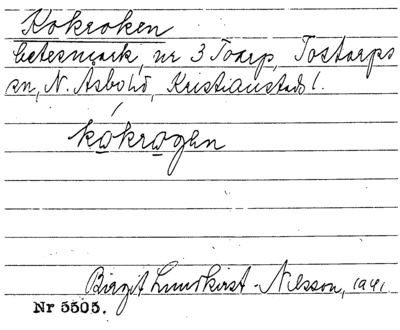 Kokroken
betesmark, nr 3 Toarp, Tostarps
sn, N. Åsbo hd, Kristianstads l.
kokrogen
Birgit Lundkvist-Nilsson, 1941
Nr 5505.